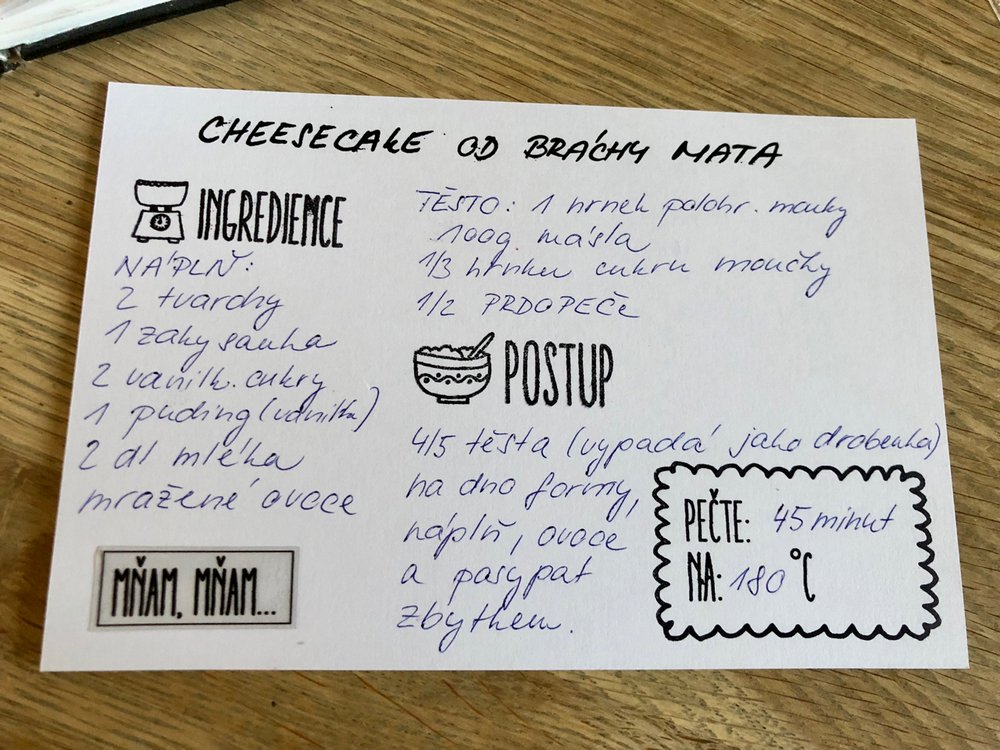 CHEESECAKE OD BRÁCHY MATA
INGREDIENCE
NÁPLŇ:
2 tvarohy
1 zakysanka
2 vanilk. cukry
1 puding (vanilka)
2 dl mléka
mražené ovoce
MŇAM, MŇAM...
TĚSTO: 1 hrnek polohr. mouky
100g másla
1/3 hrnku cukru moučky
1/2 PRDOPEČe
POSTUP
4/5 těsta (vypadá jako drobenka)
na dno formy,
náplň, ovoce
a posypat
zbytkem.
PEČTE: 45 minut
NA: 180 °C